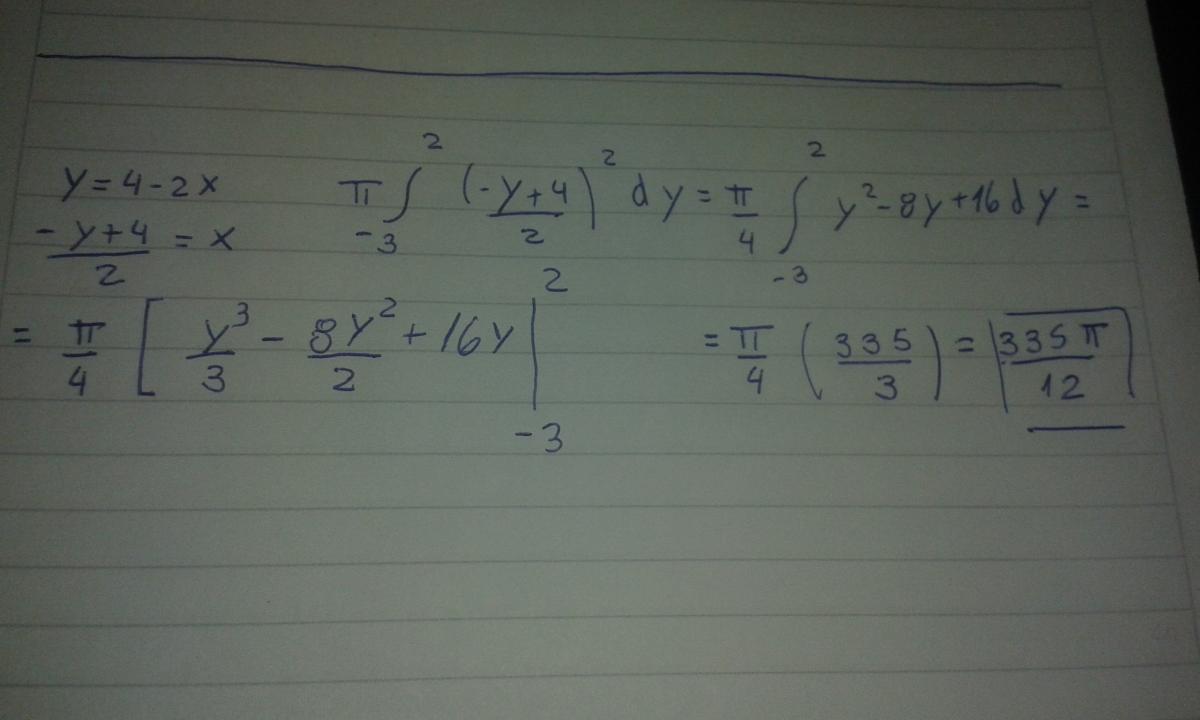 y = 4 - 2x    π ∫_{-3}^{2} ((-y+4)/2)^2 dy = π/4 ∫_{-3}^{2} y^2 - 8y + 16 dy =
(-y+4)/2 = x
= π/4 [ y^3/3 - 8y^2/2 + 16y |_{-3}^{2} = π/4 (335/3) = 335π/12